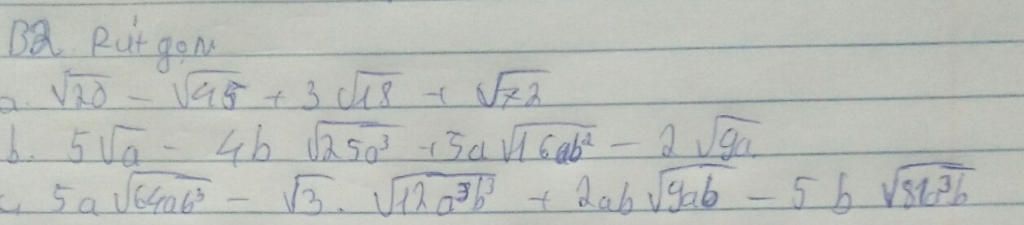 B2. Rút gọn
a. √20 - √45 + 3√18 + √72
b. 5√a - 4b √25a³ + 5a√16ab² - 2√9a
c, 5a√64ab³ - √3 . √12a³b³ + 2ab√9ab - 5b √81a³b